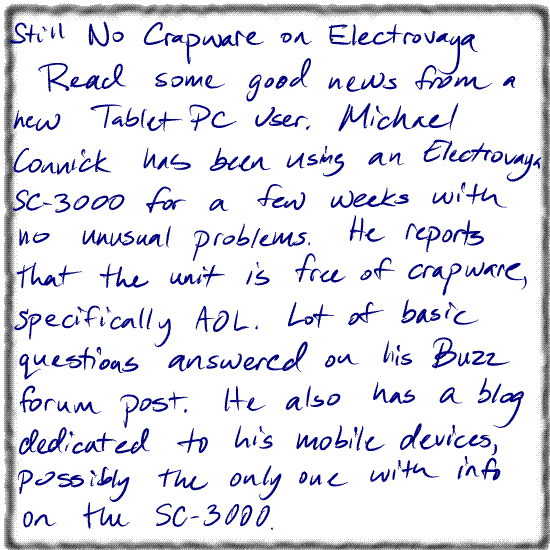 Still No Crapware on Electrovaya
Read some good news from a
new Tablet PC user. Michael
Connick has been using an Electrovaya
SC-3000 for a few weeks with
no unusual problems. He reports
that the unit is free of crapware,
specifically AOL. Lot of basic
questions answered on his Buzz
forum post. He also has a blog
dedicated to his mobile devices,
possibly the only one with info
on the SC-3000.